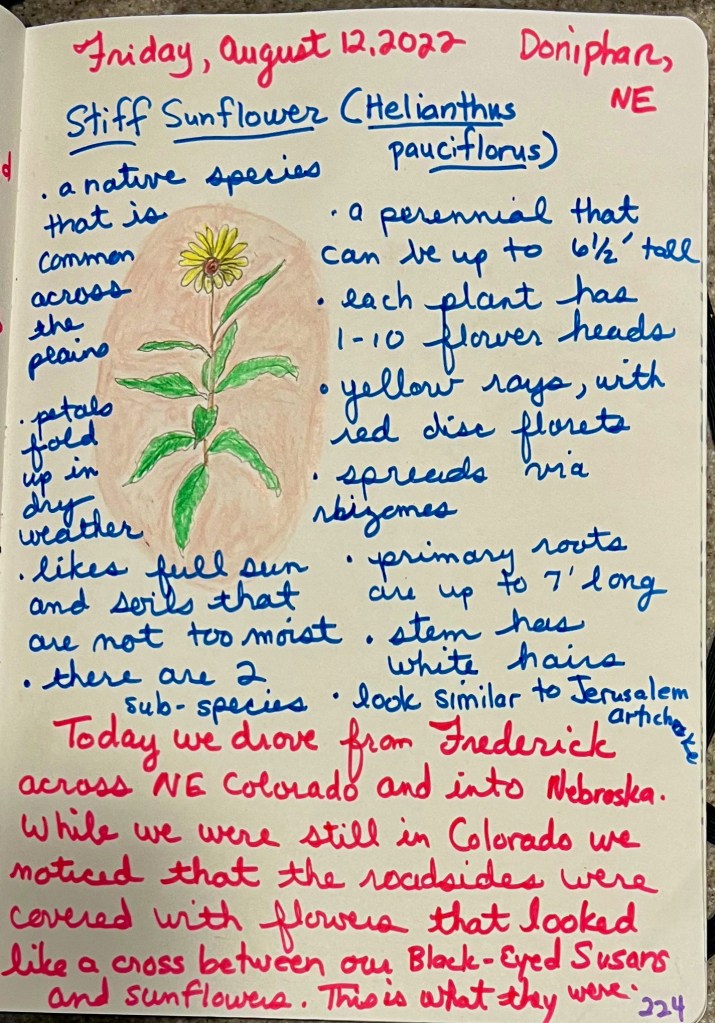 Friday, August 12, 2022 Doniphan,
NE
Stiff Sunflower (Helianthus
pauciflorus)
· a native species
that is
common
across
the
plains
· petals
fold
up in
dry
weather
· likes full sun
and soils that
are not too moist
· there are 2
sub-species
· a perennial that
can be up to 6½' tall
· each plant has
1-10 flower heads
· yellow rays, with
red disc florets
· spreads via
rhizomes
· primary roots
are up to 7' long
· stem has
white hairs
· look similar to Jerusalem
artichoke
Today we drove from Frederick
across NE Colorado and into Nebraska.
While we were still in Colorado we
noticed that the roadsides were
covered with flowers that looked
like a cross between our Black-Eyed Susans
and sunflowers. This is what they were.
224